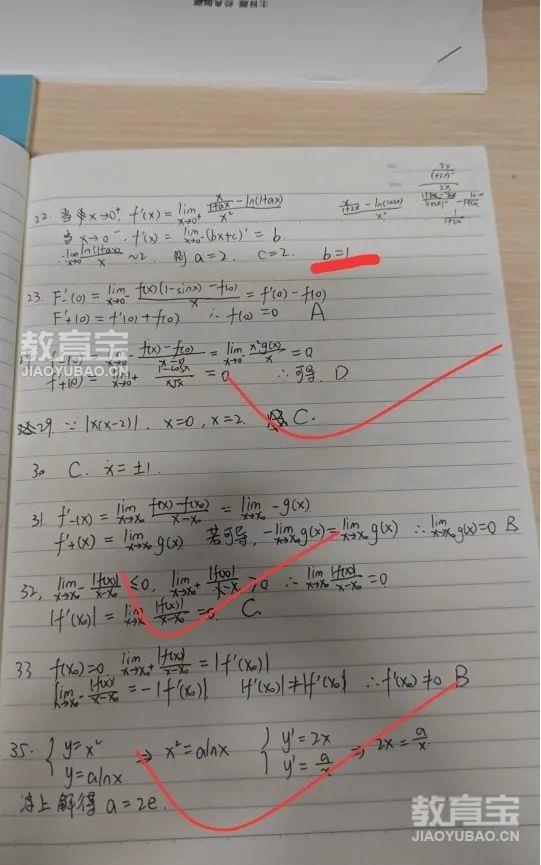 22. 当x→0⁺, f'(x)=lim_{x→0⁺} (x/(1+ax) - ln(1+ax))/x²
当x→0⁻. f'(x)=lim_{x→0⁻}(bx+c)'=b.
∴lim_{x→0} ln(1+ax)/x ~2. 则 a=2. c=2. b=1
23. F'₋(0)=lim_{x→0⁻} (f(x)(1-sinx)-f(0))/x = f'(0)-f(0)
F'₊(0)=f'(0)+f(0) ∴f(0)=0 A
f'₋(0)= (f(x)-f(0))/(x-0) = lim_{x→0⁻} x²g(x)/x =0
f'₊(0)=lim_{x→0⁺} (1-cosx)/(x√x) =0 ∴可导. D
29 ∵|x(x-2)|. x=0, x=2. C.
30 C. x=±1.
31. f'₋(x)=lim_{x→x₀} (f(x)-f(x₀))/(x-x₀) = lim_{x→x₀} -g(x)
f'₊(x)=lim_{x→x₀} g(x) 若可导, -lim_{x→x₀} g(x)=lim_{x→x₀} g(x) ∴lim_{x→x₀} g(x)=0 B
32, lim_{x→x₀⁻} |f(x)|/(x-x₀) ≤0, lim_{x→x₀⁺} |f(x)|/(x-x₀) ≥0 ∴lim_{x→x₀} |f(x)|/(x-x₀) =0
|f'(x₀)|=lim_{x→x₀} |f(x)|/(x-x₀) =0. C.
33 f(x₀)=0 lim_{x→x₀⁺} |f(x)|/(x-x₀) =|f'(x₀)|
lim_{x→x₀⁻} |f(x)|/(x-x₀) =-|f'(x₀)| |f'(x₀)|≠|f'(x₀)| ∴f'(x₀)≠0 B
35. {y=x² y=alnx ⇒ x²=alnx {y'=2x y'=a/x ⇒ 2x=a/x
综上解得a=2e.
教育宝
JIAOYUBAO.CN
教育宝
JIAOYUBAO.CN